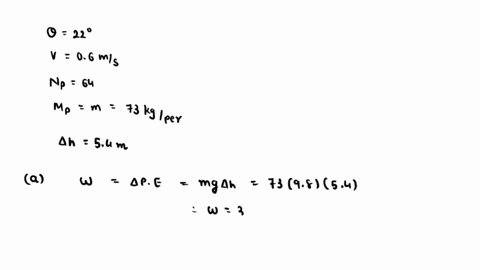 θ = 22°
V = 0.6 m/s
Np = 64
Mp = m = 73 kg/per
Δh = 5.4 m
(a) W = ΔP.E = mgΔh = 73(9.8)(5.4)
: W = 3